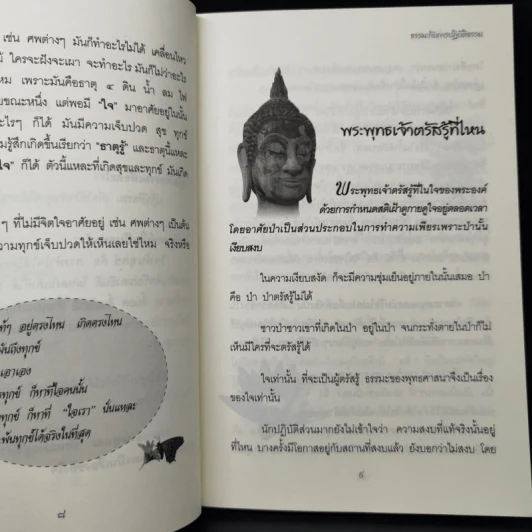 เช่น ศพต่างๆ มันก็ทำอะไรไม่ได้ เคลื่อนไหว
ใครจะฝังจะเผา จะทำอะไร มันก็ไม่ว่าอะไร
เพราะมันคือธาตุ ๔ ดิน น้ำ ลม ไฟ
ขณะหนึ่ง แต่พอมี "ใจ" มาอาศัยอยู่ในนั้น
อะไรๆ ก็ได้ มันมีความเจ็บปวด สุข ทุกข์
รู้สึกเกิดขึ้นเรียกว่า "ธาตุรู้" และธาตุนี้แหละ
ก็ได้ ตัวนี้แหละที่เกิดสุขและทุกข์ มันเกิด
ที่ไม่มีจิตใจอาศัยอยู่ เช่น ศพต่างๆ เป็นต้น
ความทุกข์เจ็บปวดให้เห็นเลยใช่ไหม จริงหรือ
อยู่ตรงไหน เกิดตรงไหน
มันถึงทุกข์
เอาเอง
ทุกข์ ก็หาที่ใจคนนั้น
ทุกข์ ก็หาที่ "ใจเรา" นั่นแหละ
พ้นทุกข์ได้จริงในที่สุด
๘
ธรรมะกับการปฏิบัติธรรม
พระพุทธเจ้าตรัสรู้ที่ไหน
พระพุทธเจ้าตรัสรู้ที่ในใจของพระองค์
ด้วยการกำหนดสติเฝ้าดูกายดูใจอยู่ตลอดเวลา
โดยอาศัยป่าเป็นส่วนประกอบในการทำความเพียรเพราะป่านั้น
เงียบสงบ
ในความเงียบสงัด ก็จะมีความชุ่มเย็นอยู่ภายในนั้นเสมอ ป่า
คือ ป่า ป่าตรัสรู้ไม่ได้
ชาวป่าชาวเขาที่เกิดในป่า อยู่ในป่า จนกระทั่งตายในป่าก็ไม่
เห็นมีใครที่จะตรัสรู้ได้
ใจเท่านั้น ที่จะเป็นผู้ตรัสรู้ ธรรมะของพุทธศาสนาจึงเป็นเรื่อง
ของใจเท่านั้น
นักปฏิบัติส่วนมากยังไม่เข้าใจว่า ความสงบที่แท้จริงนั้นอยู่
ที่ไหน บางครั้งมีโอกาสอยู่กับสถานที่สงบแล้ว ยังบอกว่าไม่สงบ โดย
๙